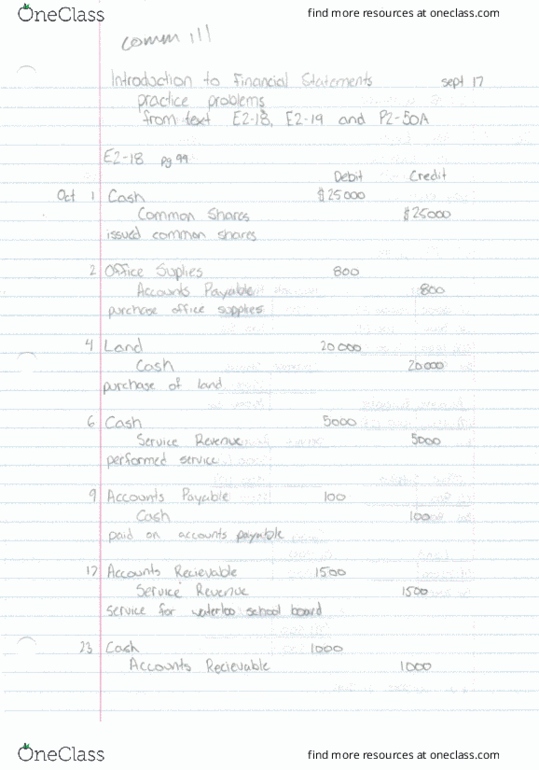 OneClass
find more resources at oneclass.com
comm 111
Introduction to Financial Statements sept 17
practice problems
from text E2-18, E2-19 and P2-50A
E2-18 pg 99
Debit Credit
Oct 1 Cash $25000
Common Shares $25000
issued common shares
2 Office Supplies 800
Accounts Payable 800
purchase office supplies
4 Land 20000
Cash 20000
purchase of land
6 Cash 5000
Service Revenue 5000
performed service
9 Accounts Payable 100
Cash 100
paid on accounts payable
17 Accounts Recievable 1500
Service Revenue 1500
service for waterloo school board
23 Cash 1000
Accounts Recievable 1000
OneClass
find more resources at oneclass.com